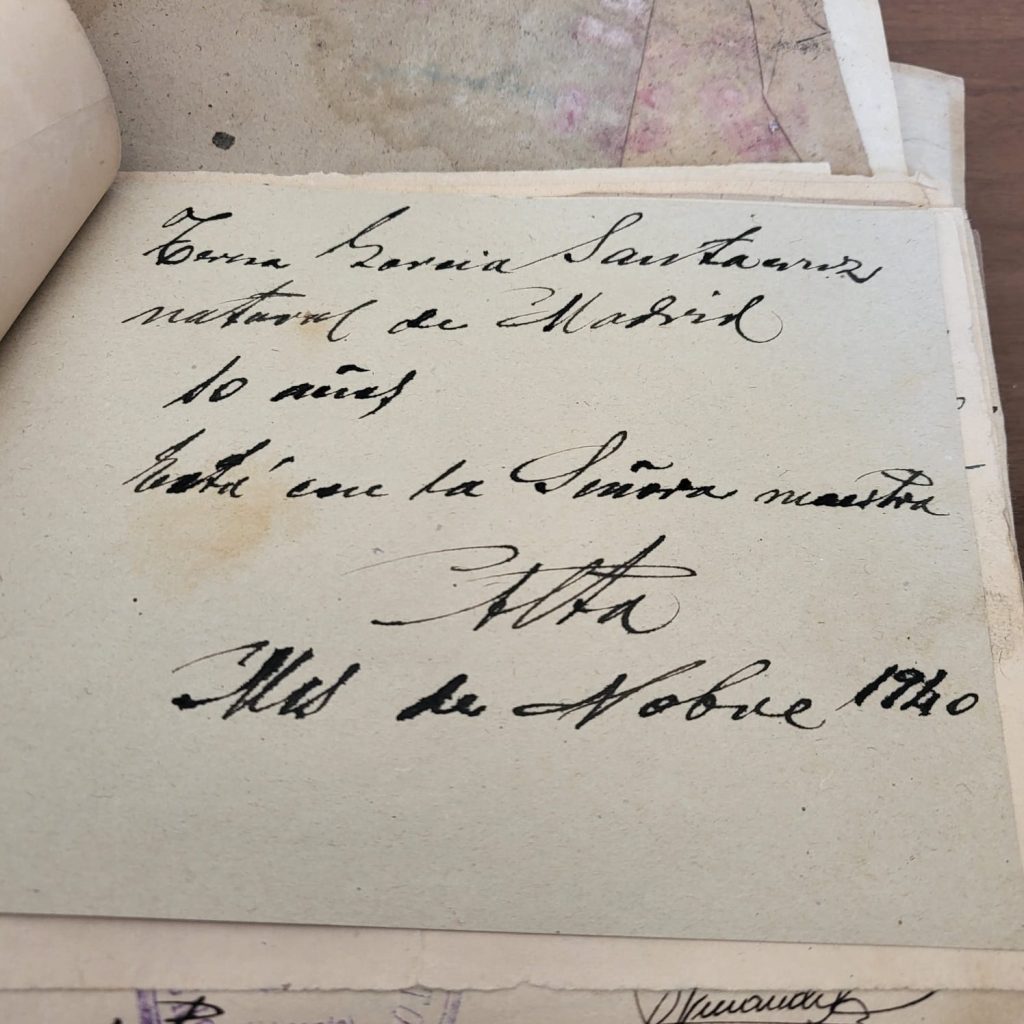 Teresa Garcia Santacruz
natural de Madrid
10 años
Está con la Señora maestra
Alta
Mes de Nobre 1940